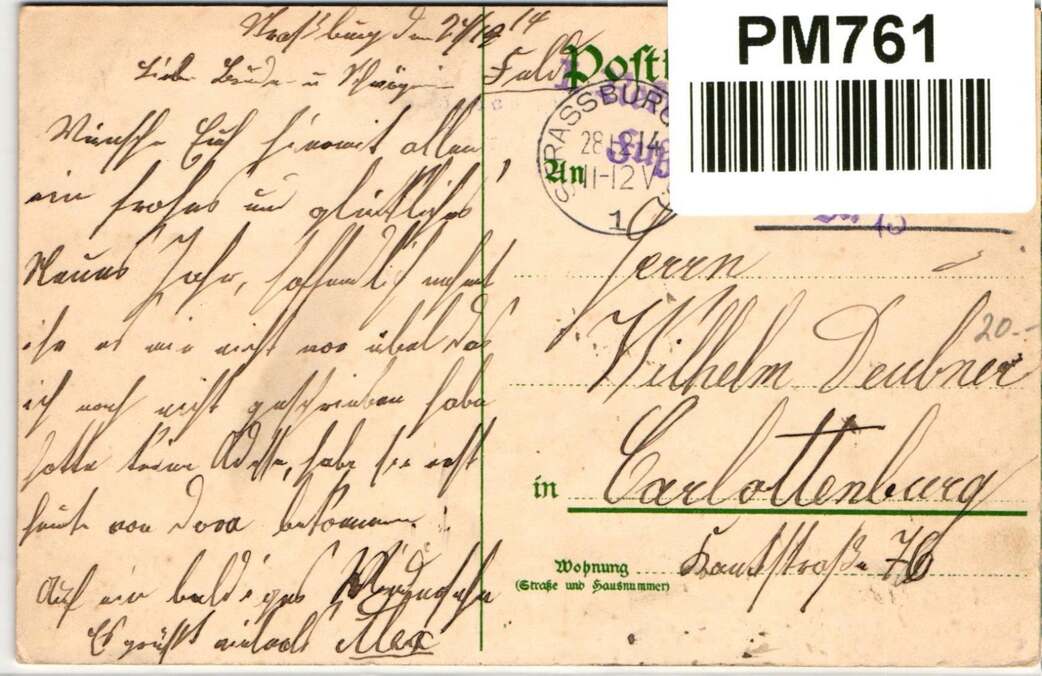 Straßburg den 27/12 14
Liebe Bruder u Schwägerin
Wünsche Euch hiermit allen
ein frohes und glückliches
Neues Jahr, hoffendlich nehmt
ihr es mir nicht vor übel das
ich noch nicht geschrieben habe
hatte keine Adresse, habe sie erst
heute von Dora bekommen.
Auf ein baldiges Wiedersehn
Es grüßt vielmals Max
Feld Postk
STRASSBURG
28.12.14
11-12 V
1
An
PM761
Herrn
Wilhelm Deubner
20.-
in Carlottenburg
Wohnung
(Straße und Hausnummer)
Kantstraße 76